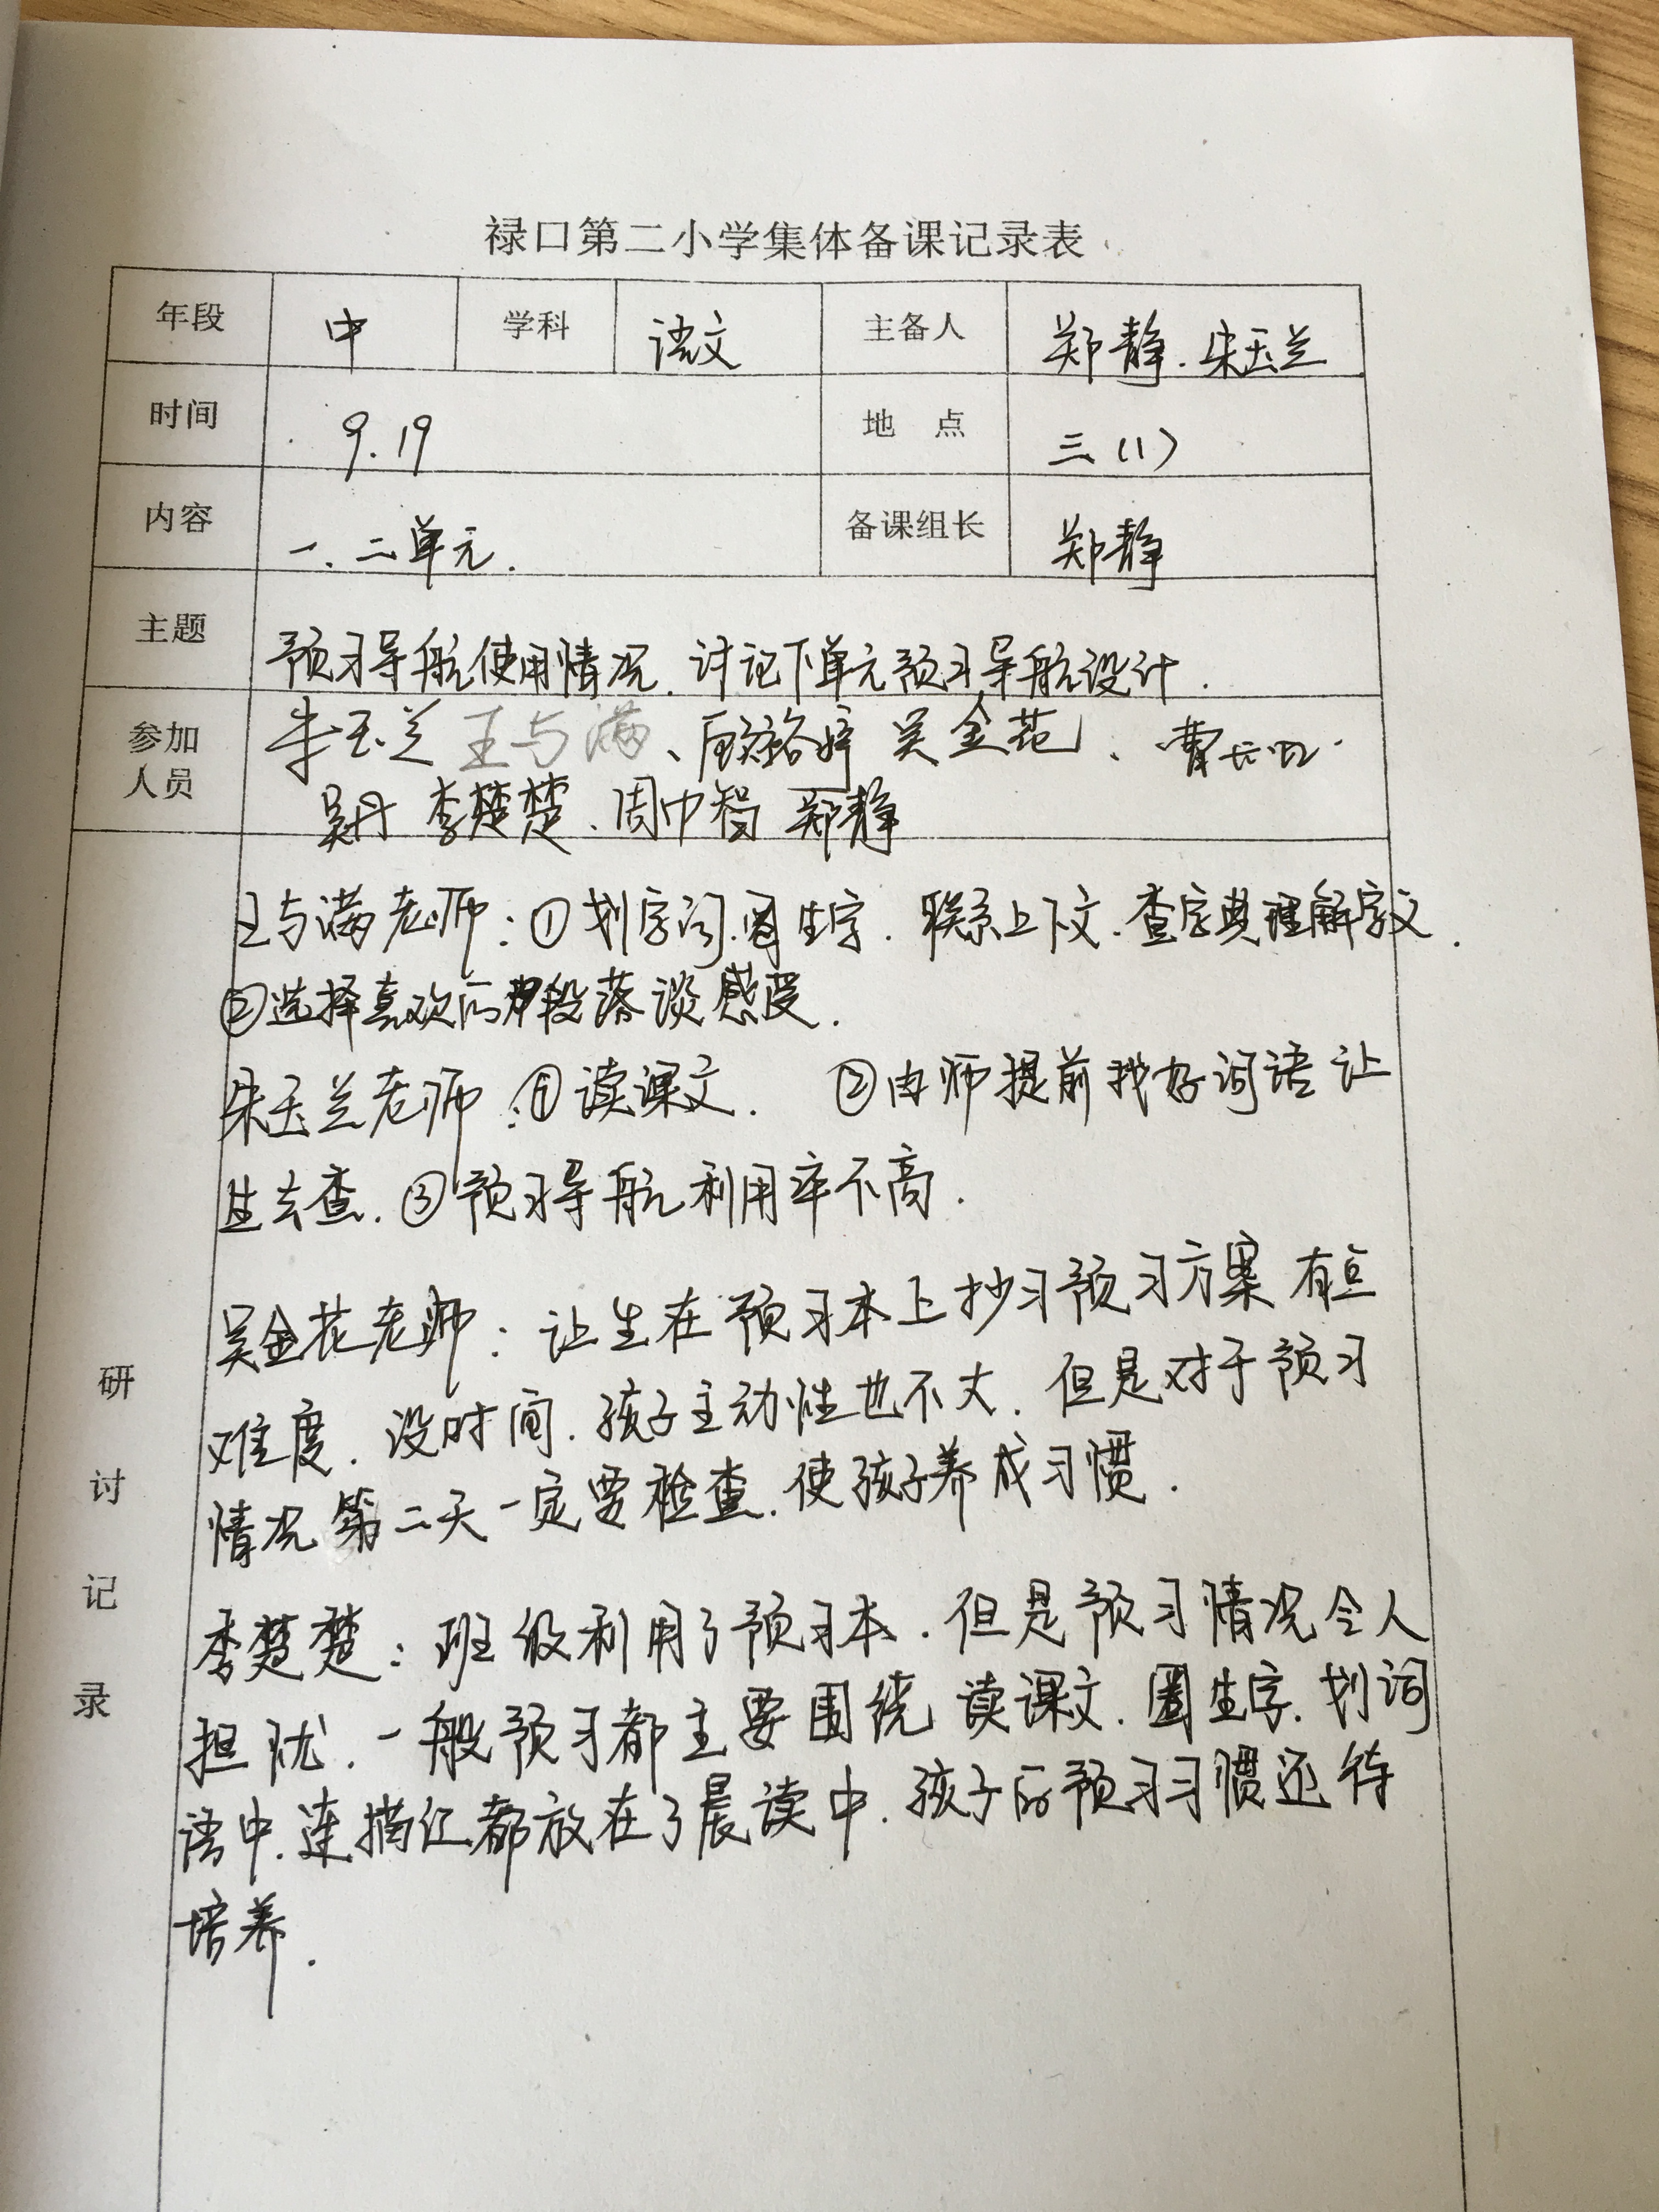 禄口第二小学集体备课记录表
年段 中 学科 语文 主备人 郑静.朱玉兰
时间 9.19 地点 三(1)
内容 一、二单元. 备课组长 郑静
主题 预习导航使用情况.讨记下单元预习导航设计.
参加人员 朱玉兰 王与满、吴金花、曹
吴丹 李楚楚、周巾智 郑静
研讨记录
王与满老师:①划字词.圈生字.联系上下文.查字典理解字义.
②选择喜欢的段落谈感受.
朱玉兰老师:①读课文. ②由师提前找好词语让
生去查.③预习导航利用率不高.
吴金花老师:让生在预习本上抄习预习方案 有点
难度.没时间.孩子主动性也不大.但是对于预习
情况第二天一定要检查.使孩子养成习惯.
李楚楚:班级利用了预习本.但是预习情况令人
担忧.一般预习都主要围绕读课文.圈生字.划词
语中.连描红都放在了晨读中.孩子的预习习惯还待
培养.